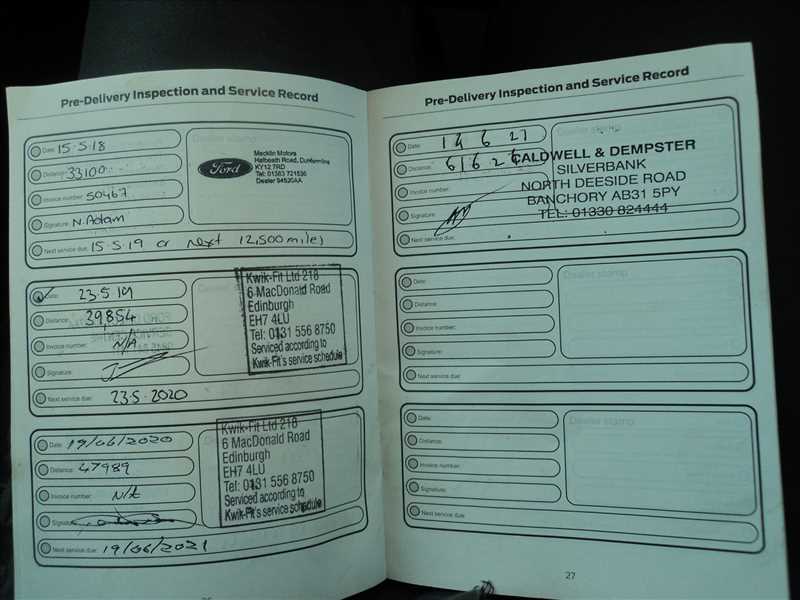 Pre-Delivery Inspection and Service Record
Date: 15.5.18
Distance: 33100
Invoice number: 50467
Signature: N.Adam
Next service due: 15.5.19 or next 12,500 mile)
Dealer stamp
Ford
Macklin Motors
Halbeath Road, Dunfermline
KY12 7RD
Tel: 01383 721536
Dealer 94520AA
Date: 23.5.19
Distance: 39,854
Invoice number: N/A
Signature:
Next service due: 23.5.2020
Kwik-Fit Ltd 218
6 MacDonald Road
Edinburgh
EH7 4LU
Tel: 0131 556 8750
Serviced according to
Kwik-Fit's service schedule
Date: 19/06/2020
Distance: 47989
Invoice number: N/A
Signature:
Next service due: 19/06/2021
Kwik-Fit Ltd 218
6 MacDonald Road
Edinburgh
EH7 4LU
Tel: 0131 556 8750
Serviced according to
Kwik-Fit's service schedule
Pre-Delivery Inspection and Service Record
Date: 14 6 21
Distance:
Invoice number:
Signature:
Next service due:
Dealer stamp
CALDWELL & DEMPSTER
SILVERBANK
NORTH DEESIDE ROAD
BANCHORY AB31 5PY
TEL: 01330 824444
Date:
Distance:
Invoice number:
Signature:
Next service due:
Dealer stamp
Date:
Distance:
Invoice number:
Signature:
Next service due:
Dealer stamp
27